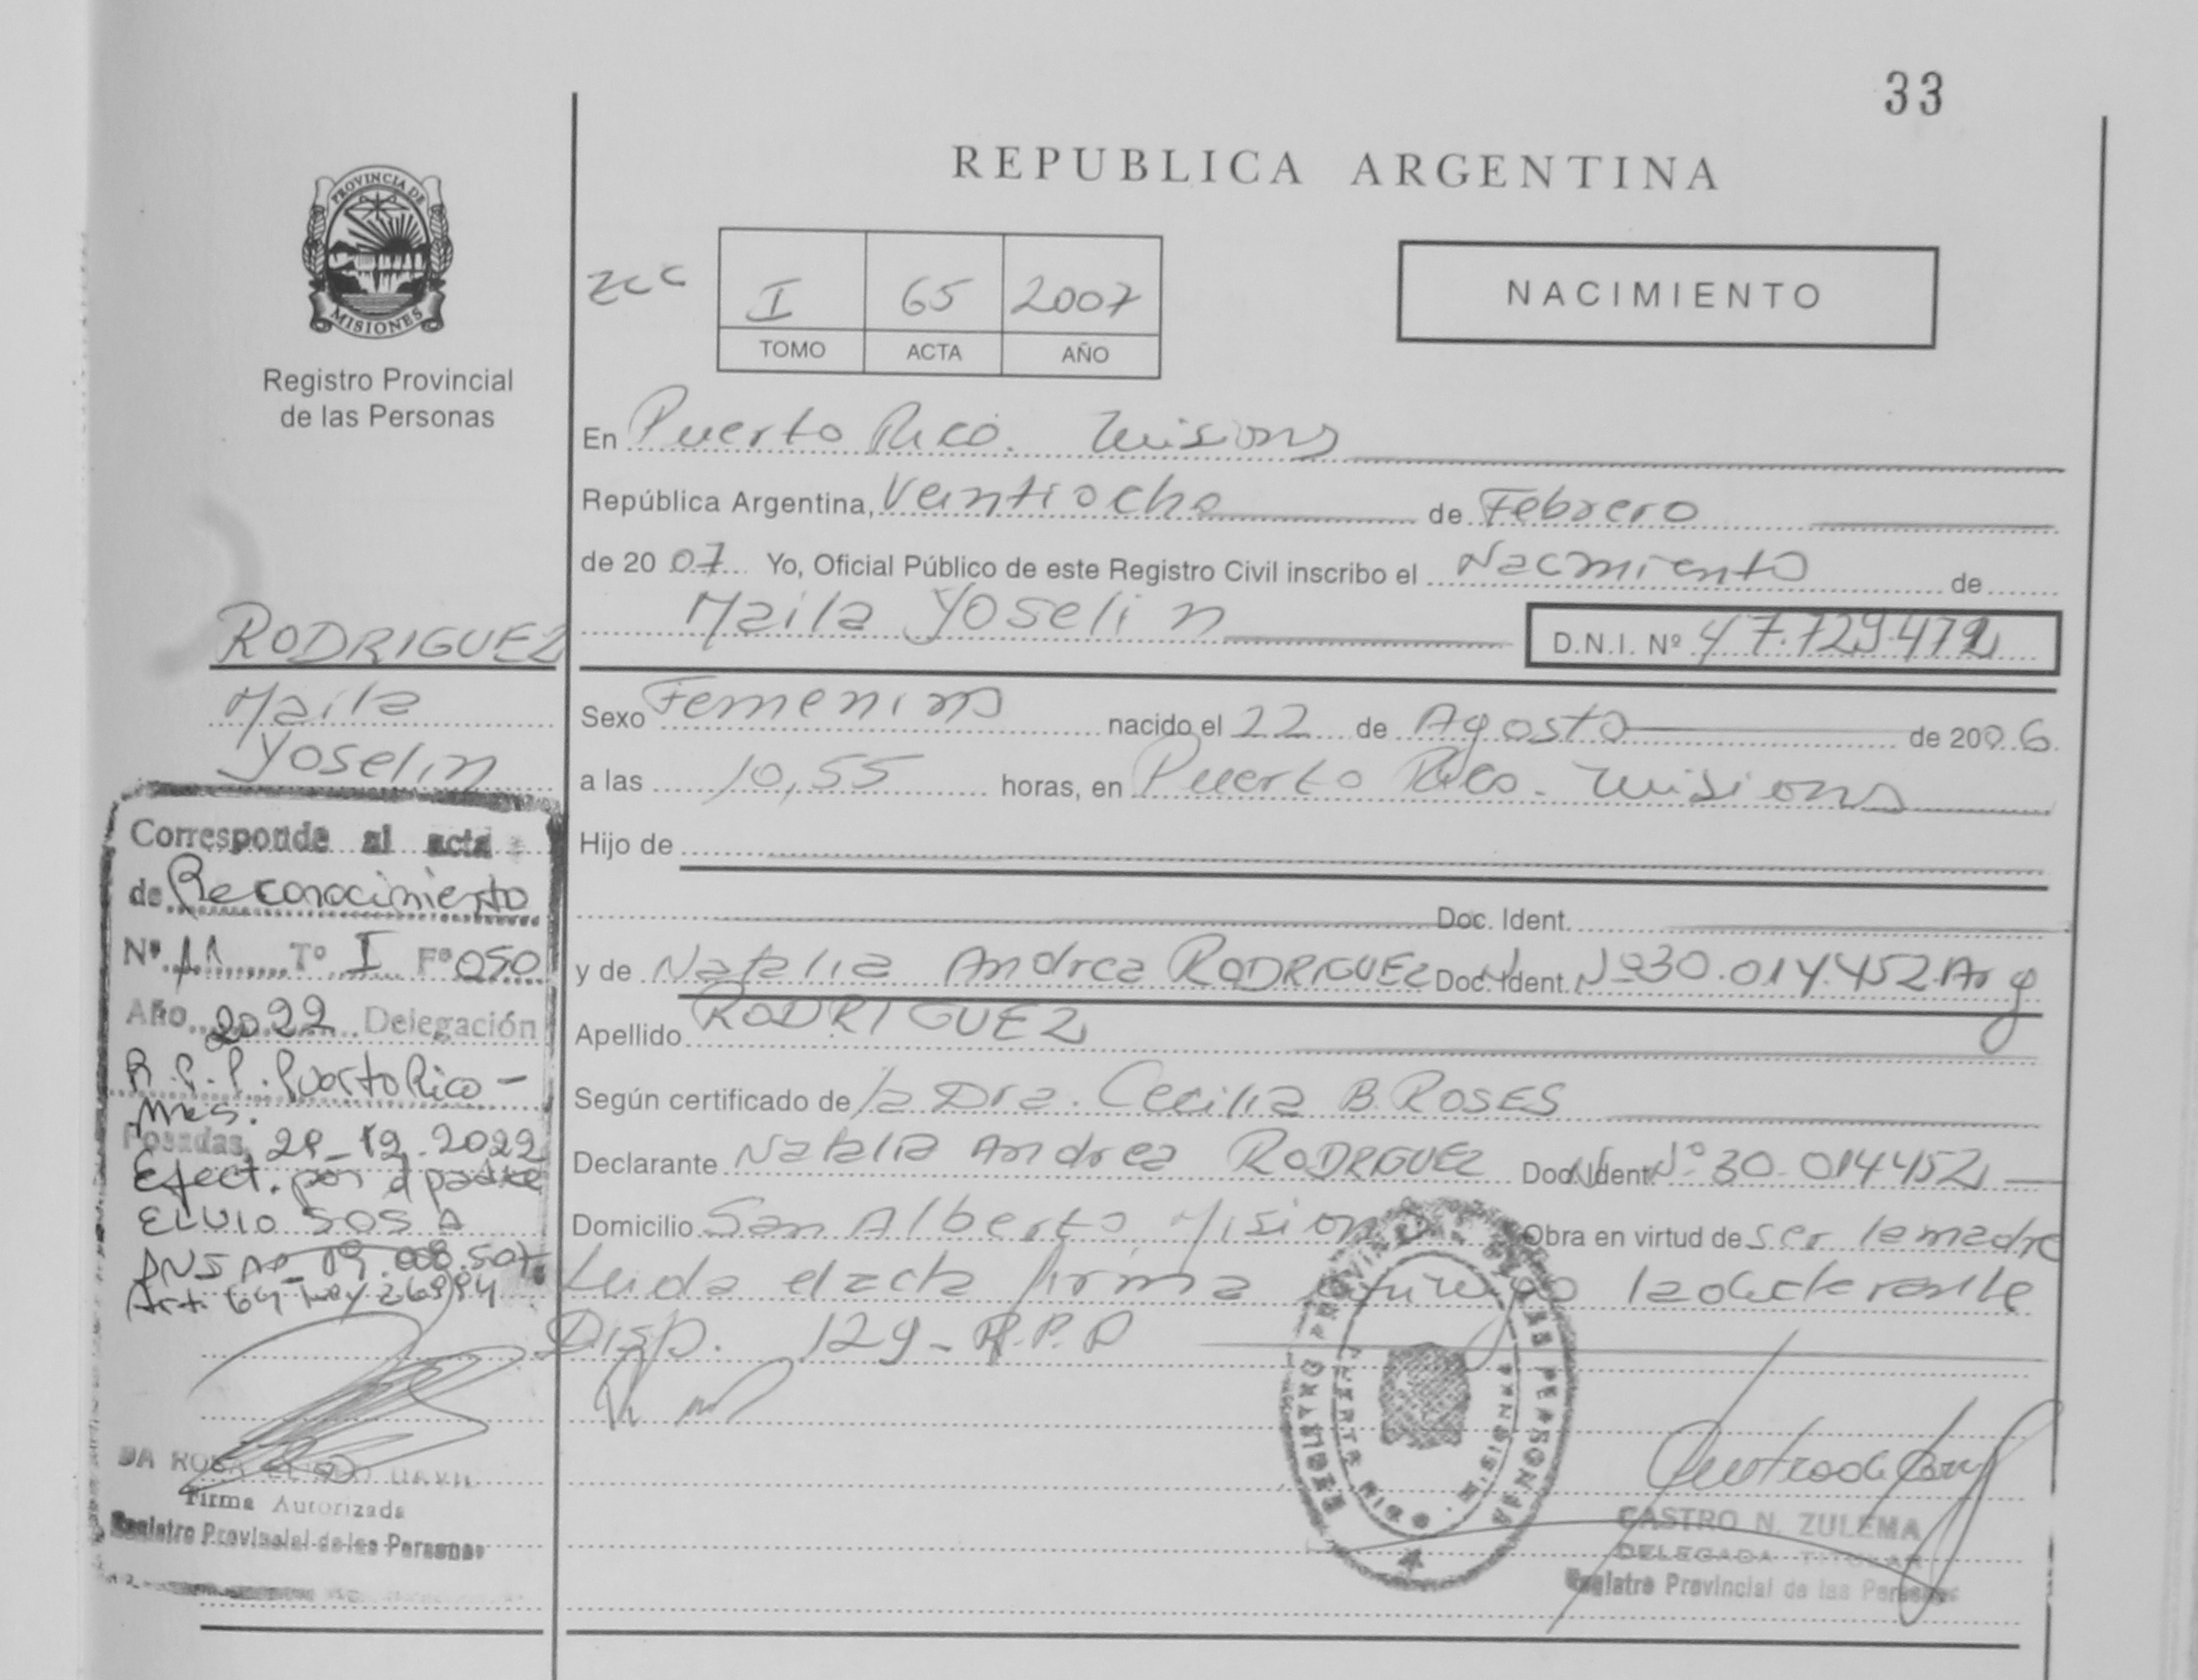 33
REPUBLICA ARGENTINA
PROVINCIA DE
MISIONES
Registro Provincial
de las Personas
zcc
I 65 2007
TOMO ACTA AÑO
NACIMIENTO
En Puerto Rico. Misiones
República Argentina, Veintiocho de Febrero
de 20 07 Yo, Oficial Público de este Registro Civil inscribo el Nacimiento de
Maila Yoselin D.N.I. Nº 47.729.472
Sexo Femenino nacido el 22 de Agosto de 2006
a las 10,55 horas, en Puerto Rico. Misiones
Hijo de
Doc. Ident.
y de Natalia Andrea RODRIGUEZ Doc. Ident. Nº 30.014.452 Arg
Apellido RODRIGUEZ
Según certificado de la Dra. Cecilia B. ROSES
Declarante Natalia Andrea RODRIGUEZ Doc. Ident. Nº 30.014452
Domicilio San Alberto, Misiones Obra en virtud de ser la madre
Leida el acta firma la declarante
Disp. 129-R.P.P
RODRIGUEZ
Maila
Yoselin
Corresponde al acta
de Reconocimiento
Nº 11 Tº I Fº 050
Año 2022 Delegación
R.P.P. Puerto Rico -
Mnes.
Posadas, 29-12-2022
Efect. por el padre
ELVIO SOSA
DNI Nº 19.008.507
Art. 64 Ley 26994
DA ROSA
Firma Autorizada
Registro Provincial de las Personas
CASTRO N. ZULEMA
DELEGADA TITULAR
Registro Provincial de las Personas